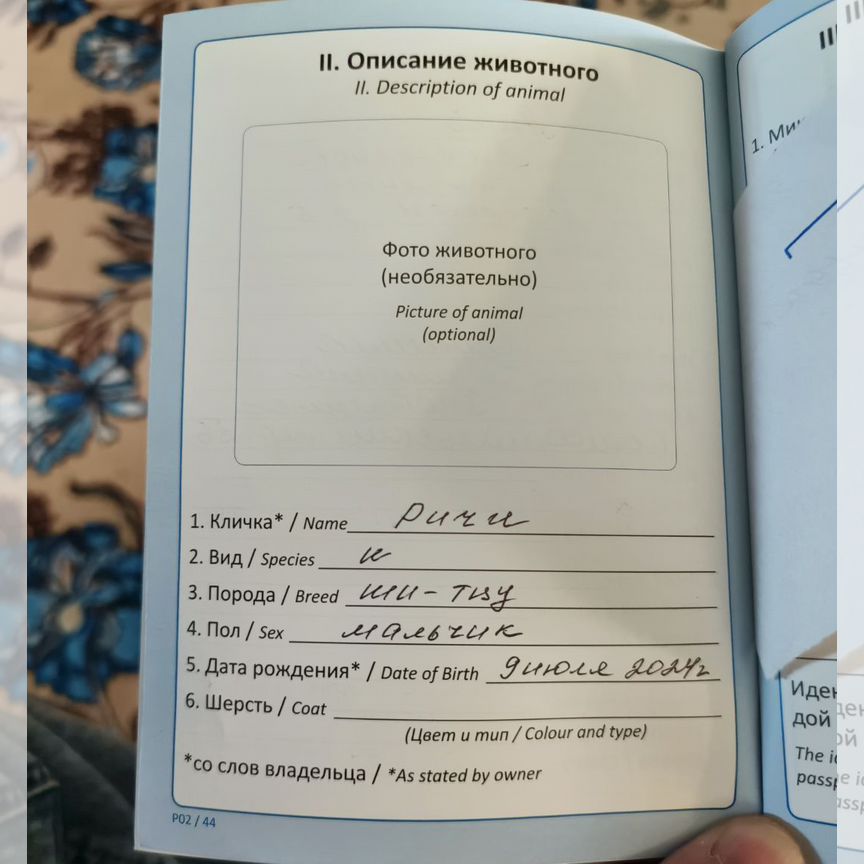 II. Описание животного
II. Description of animal
Фото животного
(необязательно)
Picture of animal
(optional)
1. Кличка* / Name Ричи
2. Вид / Species и
3. Порода / Breed ши-тцу
4. Пол / Sex мальчик
5. Дата рождения* / Date of Birth 9 июля 2024г
6. Шерсть / Coat
(Цвет и тип / Colour and type)
*со слов владельца / *As stated by owner
P02 / 44
1.
дой
The